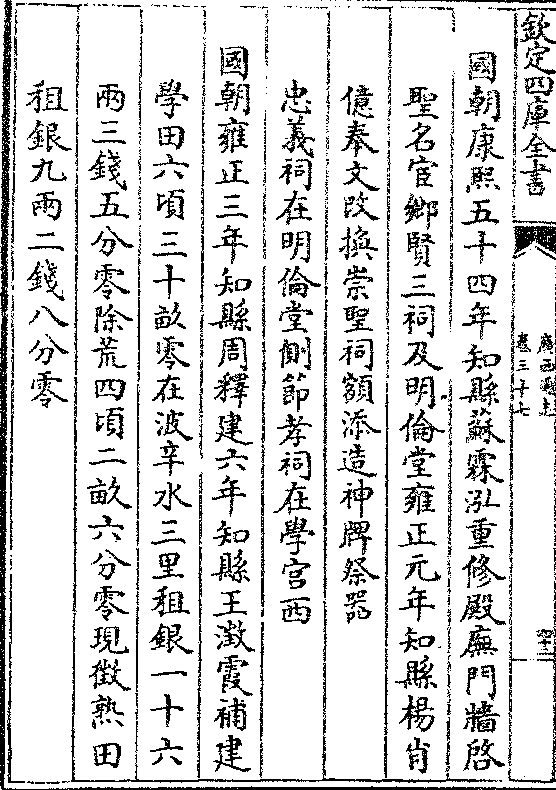 欽定四庫全書
卷三十七
國朝康熙五十四年知縣蘇霖泓重修殿廡門牆啓
聖名宦鄉賢三祠及明倫堂雍正元年知縣楊肖
億奉文改換崇聖祠額添造神牌祭器
忠義祠在明倫堂側節孝祠在學宮西
國朝雍正三年知縣周釋建六年知縣王澂霞補建
學田六頃三十畝零在波辛水三里租銀一十六
兩三錢五分零除荒四頃二畝六分零現徵熟田
租銀九兩二錢八分零